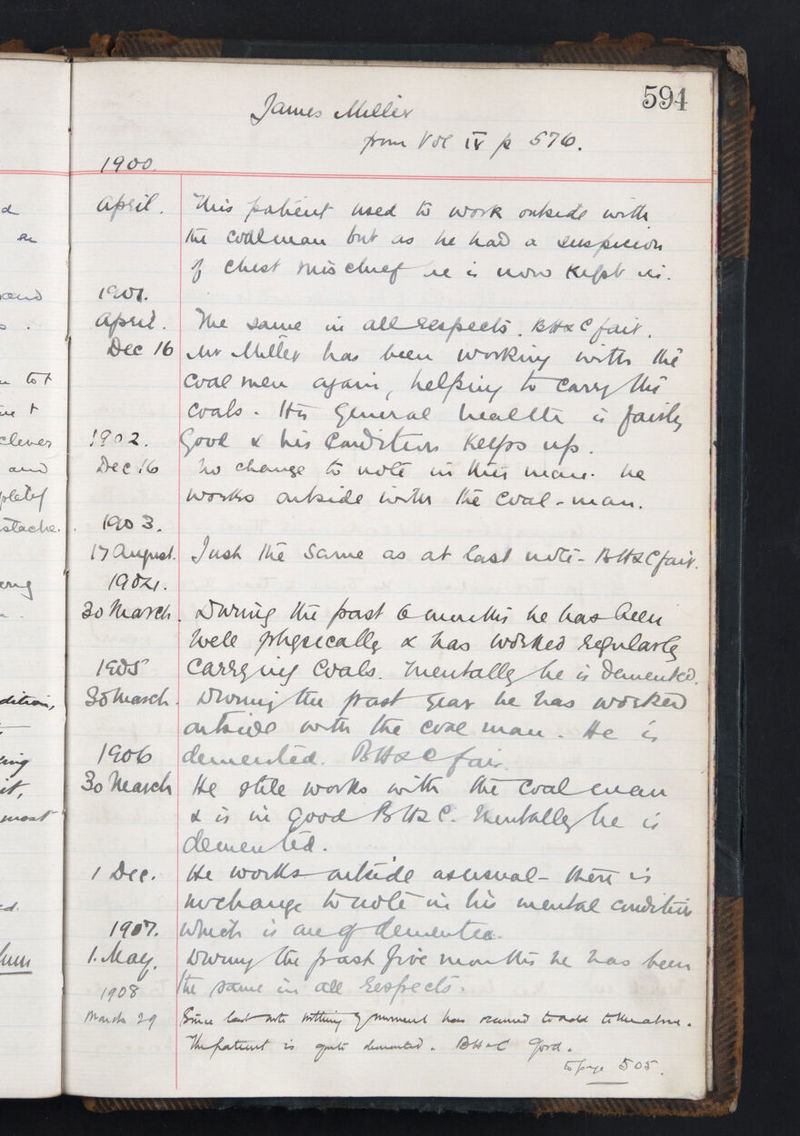 594
James Miller
from Vol IV p 576.
1900.
April. This patient used to work outside with
the coalman but as he had a suspicion
of chest mischief he is now kept in.
1901.
April. The same in all respects. BH & C fair.
Dec 16 Mr Miller has been working with the
coal men again, helping to carry the
coals. His general health is fairly
1902. good & his condition keeps up.
Dec 16 No change to note in this man. He
works outside with the coal-man.
1903.
17 August. Just the same as at last note - BH & C fair.
1904.
30 March. During the past 6 months he has been
well physically & has worked regularly
1905 carrying coals. Mentally he is demented.
30 March. During the past year he has worked
outside with the coal man. He is
1906 demented. BH & C fair.
30 March He still works with the coal man
& is in good BH & C. Mentally he is
demented.
1 Dec. He works outside as usual - there is
no change to note in his mental condition
1907. which is one of dementia.
1. May. During the past five months he has been
1908 the same in all respects.
March 29 Since last note nothing of moment has occurred to add to the above.
The patient is quite demented. BH & C good.
to page 505.
d
se
and
s.
to t
clever
and
pletely
stache.
dition,
it,
most
d.